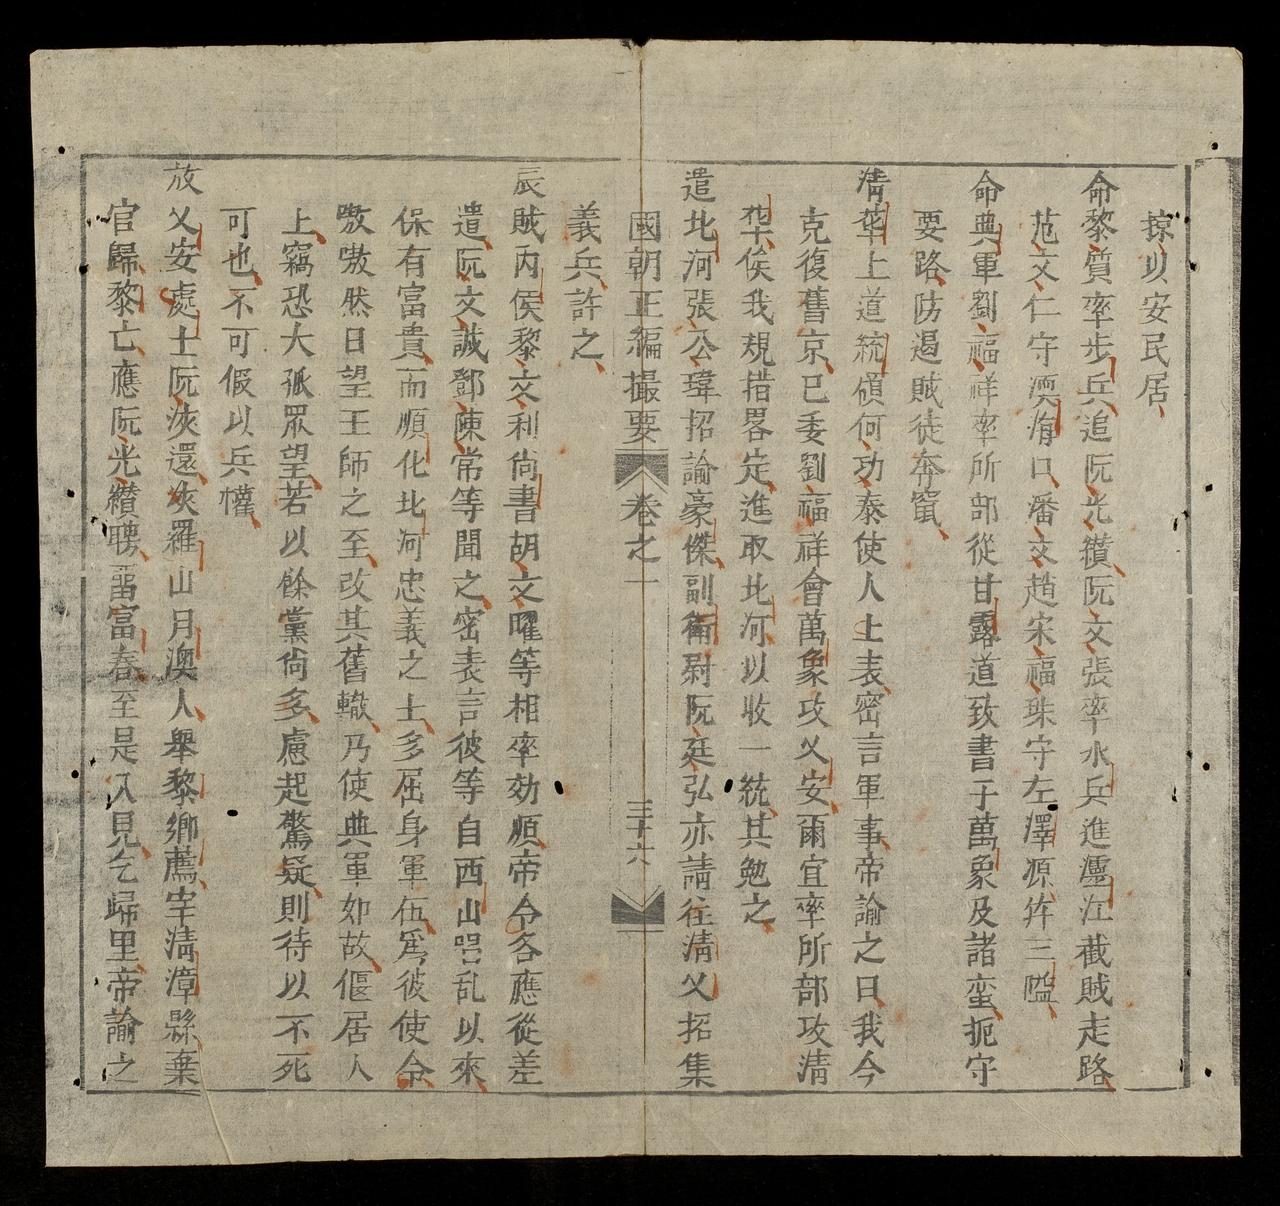 掠以安民居
命黎質率步兵追阮光纘阮文張率水兵進𤅷江截賊走路
范文仁守澳海口潘文趙宋福珠守左澤源奔三隘
命典軍劉福祥率所部從甘露道致書于萬象及諸蠻扼守
要路防遏賊徒奔竄
清華上道統領何功泰使人上表密言軍事帝諭之曰我今
克復舊京已委劉福祥會萬象攻乂安爾宜率所部攻清
華俟我規措畧定進取北河以收一統其勉之
遣北河張公瑋招諭豪傑副衞尉阮廷弘亦請往清乂招集
國朝正編撮要 卷之一 三十六
義兵許之
辰賊丙侯黎文利尙書胡文曜等相率効順帝令各應從差
遣阮文誠鄧陳常等聞之密表言彼等自西山唱乱以來
保有富貴而順化北河忠義之士多屈身軍伍爲彼使令
嗷嗷然日望王師之至改其舊轍乃使典軍如故偃居人
上竊恐大孤眾望若以餘黨尙多慮起驚疑則待以不死
可也不可假以兵權
放乂安處士阮浹還浹羅山月澳人舉黎鄉薦宰清漳縣棄
官歸黎亡應阮光纘聘畱富春至是入見乞歸里帝諭之